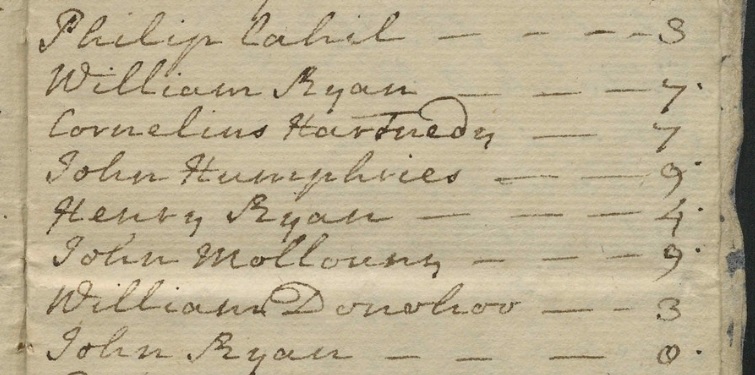 Philip Cahil — — — — 3
William Ryan — — — 7.
Cornelius Hartnedy — — 7
John Humphries — — — 9.
Henry Ryan — — — — 4.
John Mollouny — — — 9.
William Donohoo — — 3
John Ryan — — — 0.